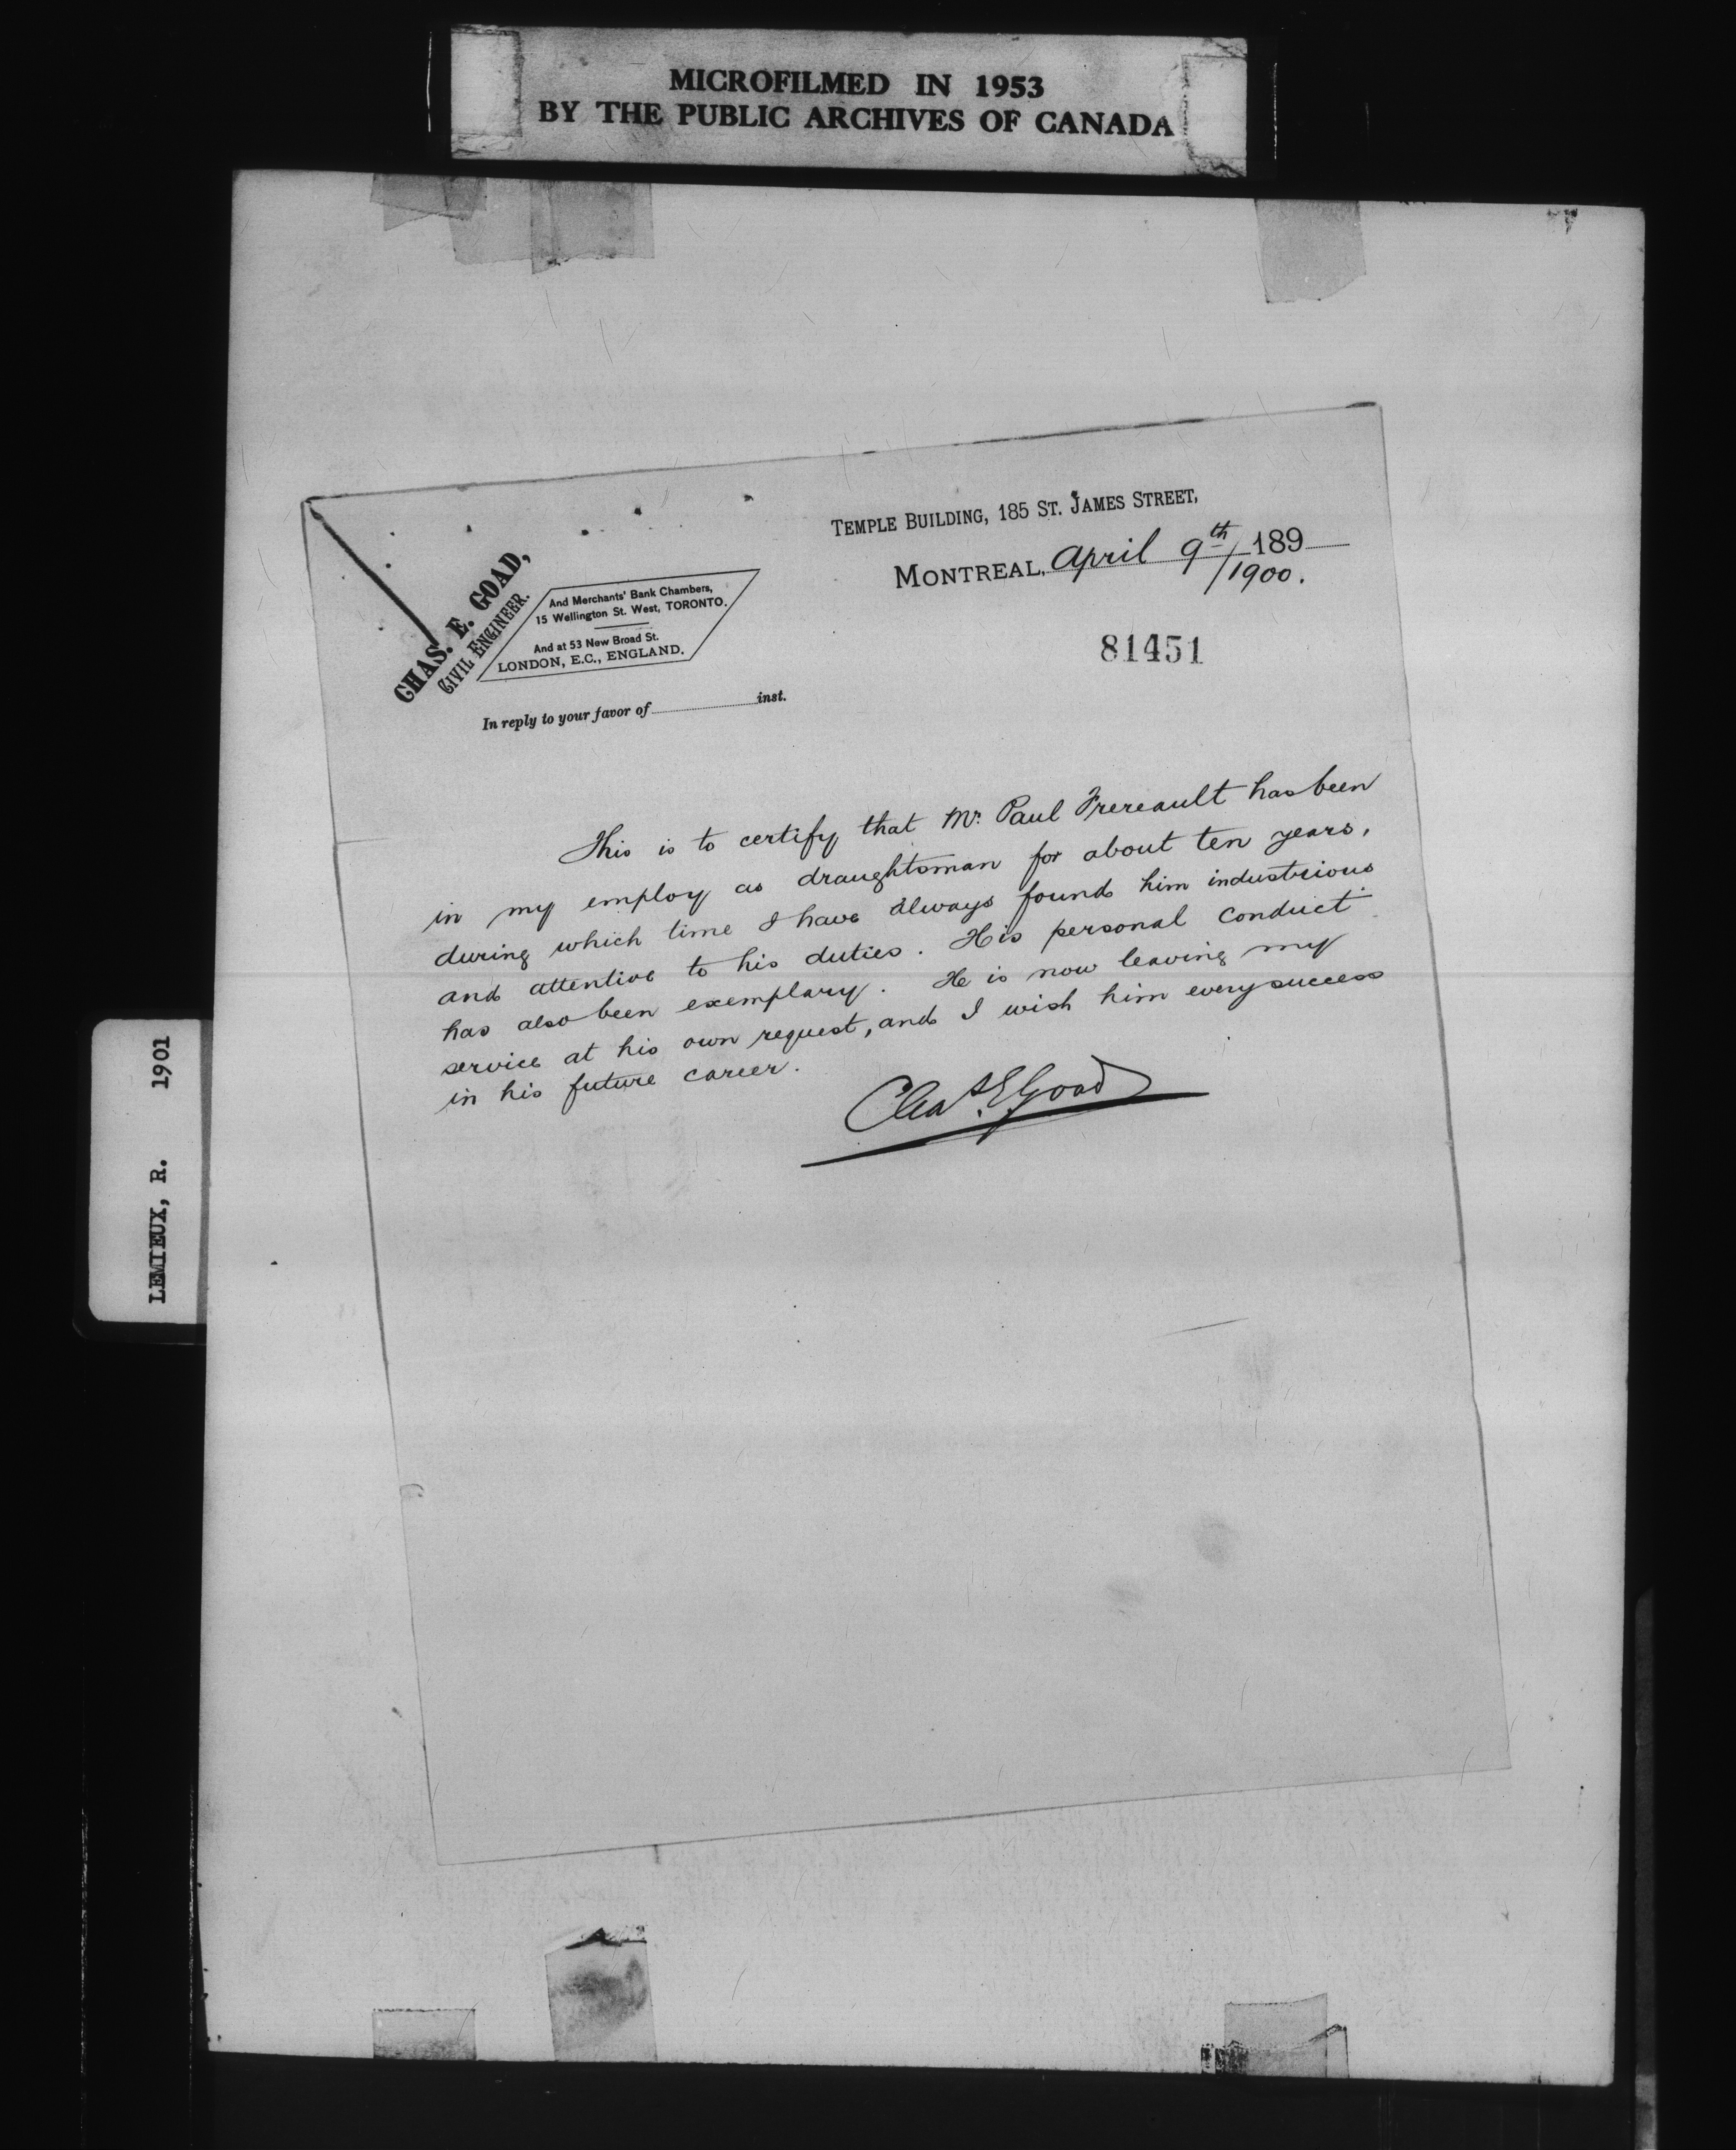 MICROFILMED IN 1953
BY THE PUBLIC ARCHIVES OF CANADA
TEMPLE BUILDING, 185 ST. JAMES STREET,
MONTREAL, April 9th 189
/1900.
CHAS. E. GOAD,
CIVIL ENGINEER.
And Merchants' Bank Chambers,
15 Wellington St. West, TORONTO.
And at 53 New Broad St.
LONDON, E.C., ENGLAND.
81451
In reply to your favor of inst.
This is to certify that Mr. Paul Frereault has been
in my employ as draughtsman for about ten years,
during which time I have always found him industrious
and attentive to his duties. His personal conduct
has also been exemplary. He is now leaving my
service at his own request, and I wish him every success
in his future career.
Chas. E Goad
LEMIEUX, R. 1901